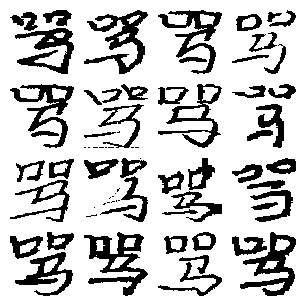 骂骂骂骂
骂骂骂骂
骂骂骂骂
骂骂骂骂